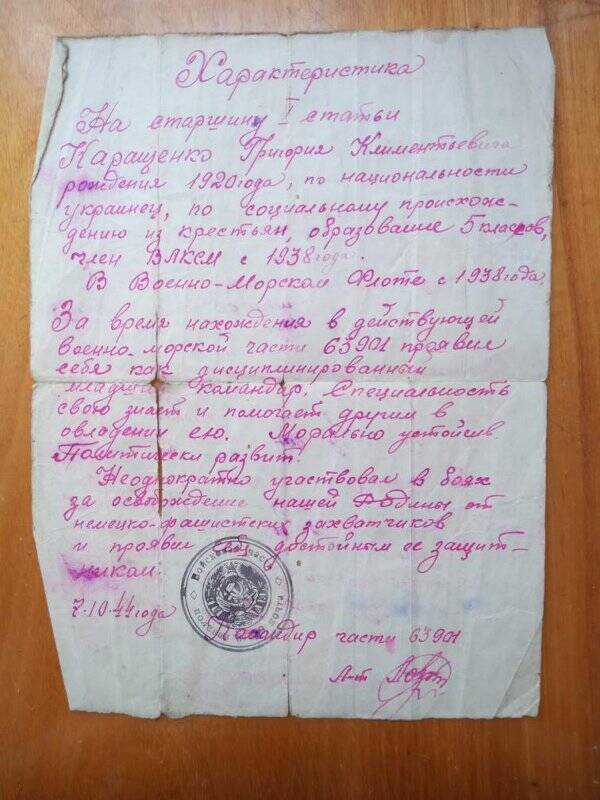 Характеристика
На старшину I статьи
Каращенко Григория Климентьевича
рождения 1920 года, по национальности
украинец, по социальному происхож-
дению из крестьян, образование 5 классов,
член ВЛКСМ с 1938 года.
В Военно-Морском Флоте с 1938 года.
За время нахождения в действующей
военно-морской части 63901 проявил
себя как дисциплинированный
младший командир. Специальность
свою знает и помогает другим в
овладении ею. Морально устойчив.
Политически развит.
Неоднократно участвовал в боях
за освобождение нашей Родины от
немецко-фашистских захватчиков
и проявил себя достойным ее защит-
ником.
7.10.44 года
Войсковая часть
Командир части 63901
Л-т